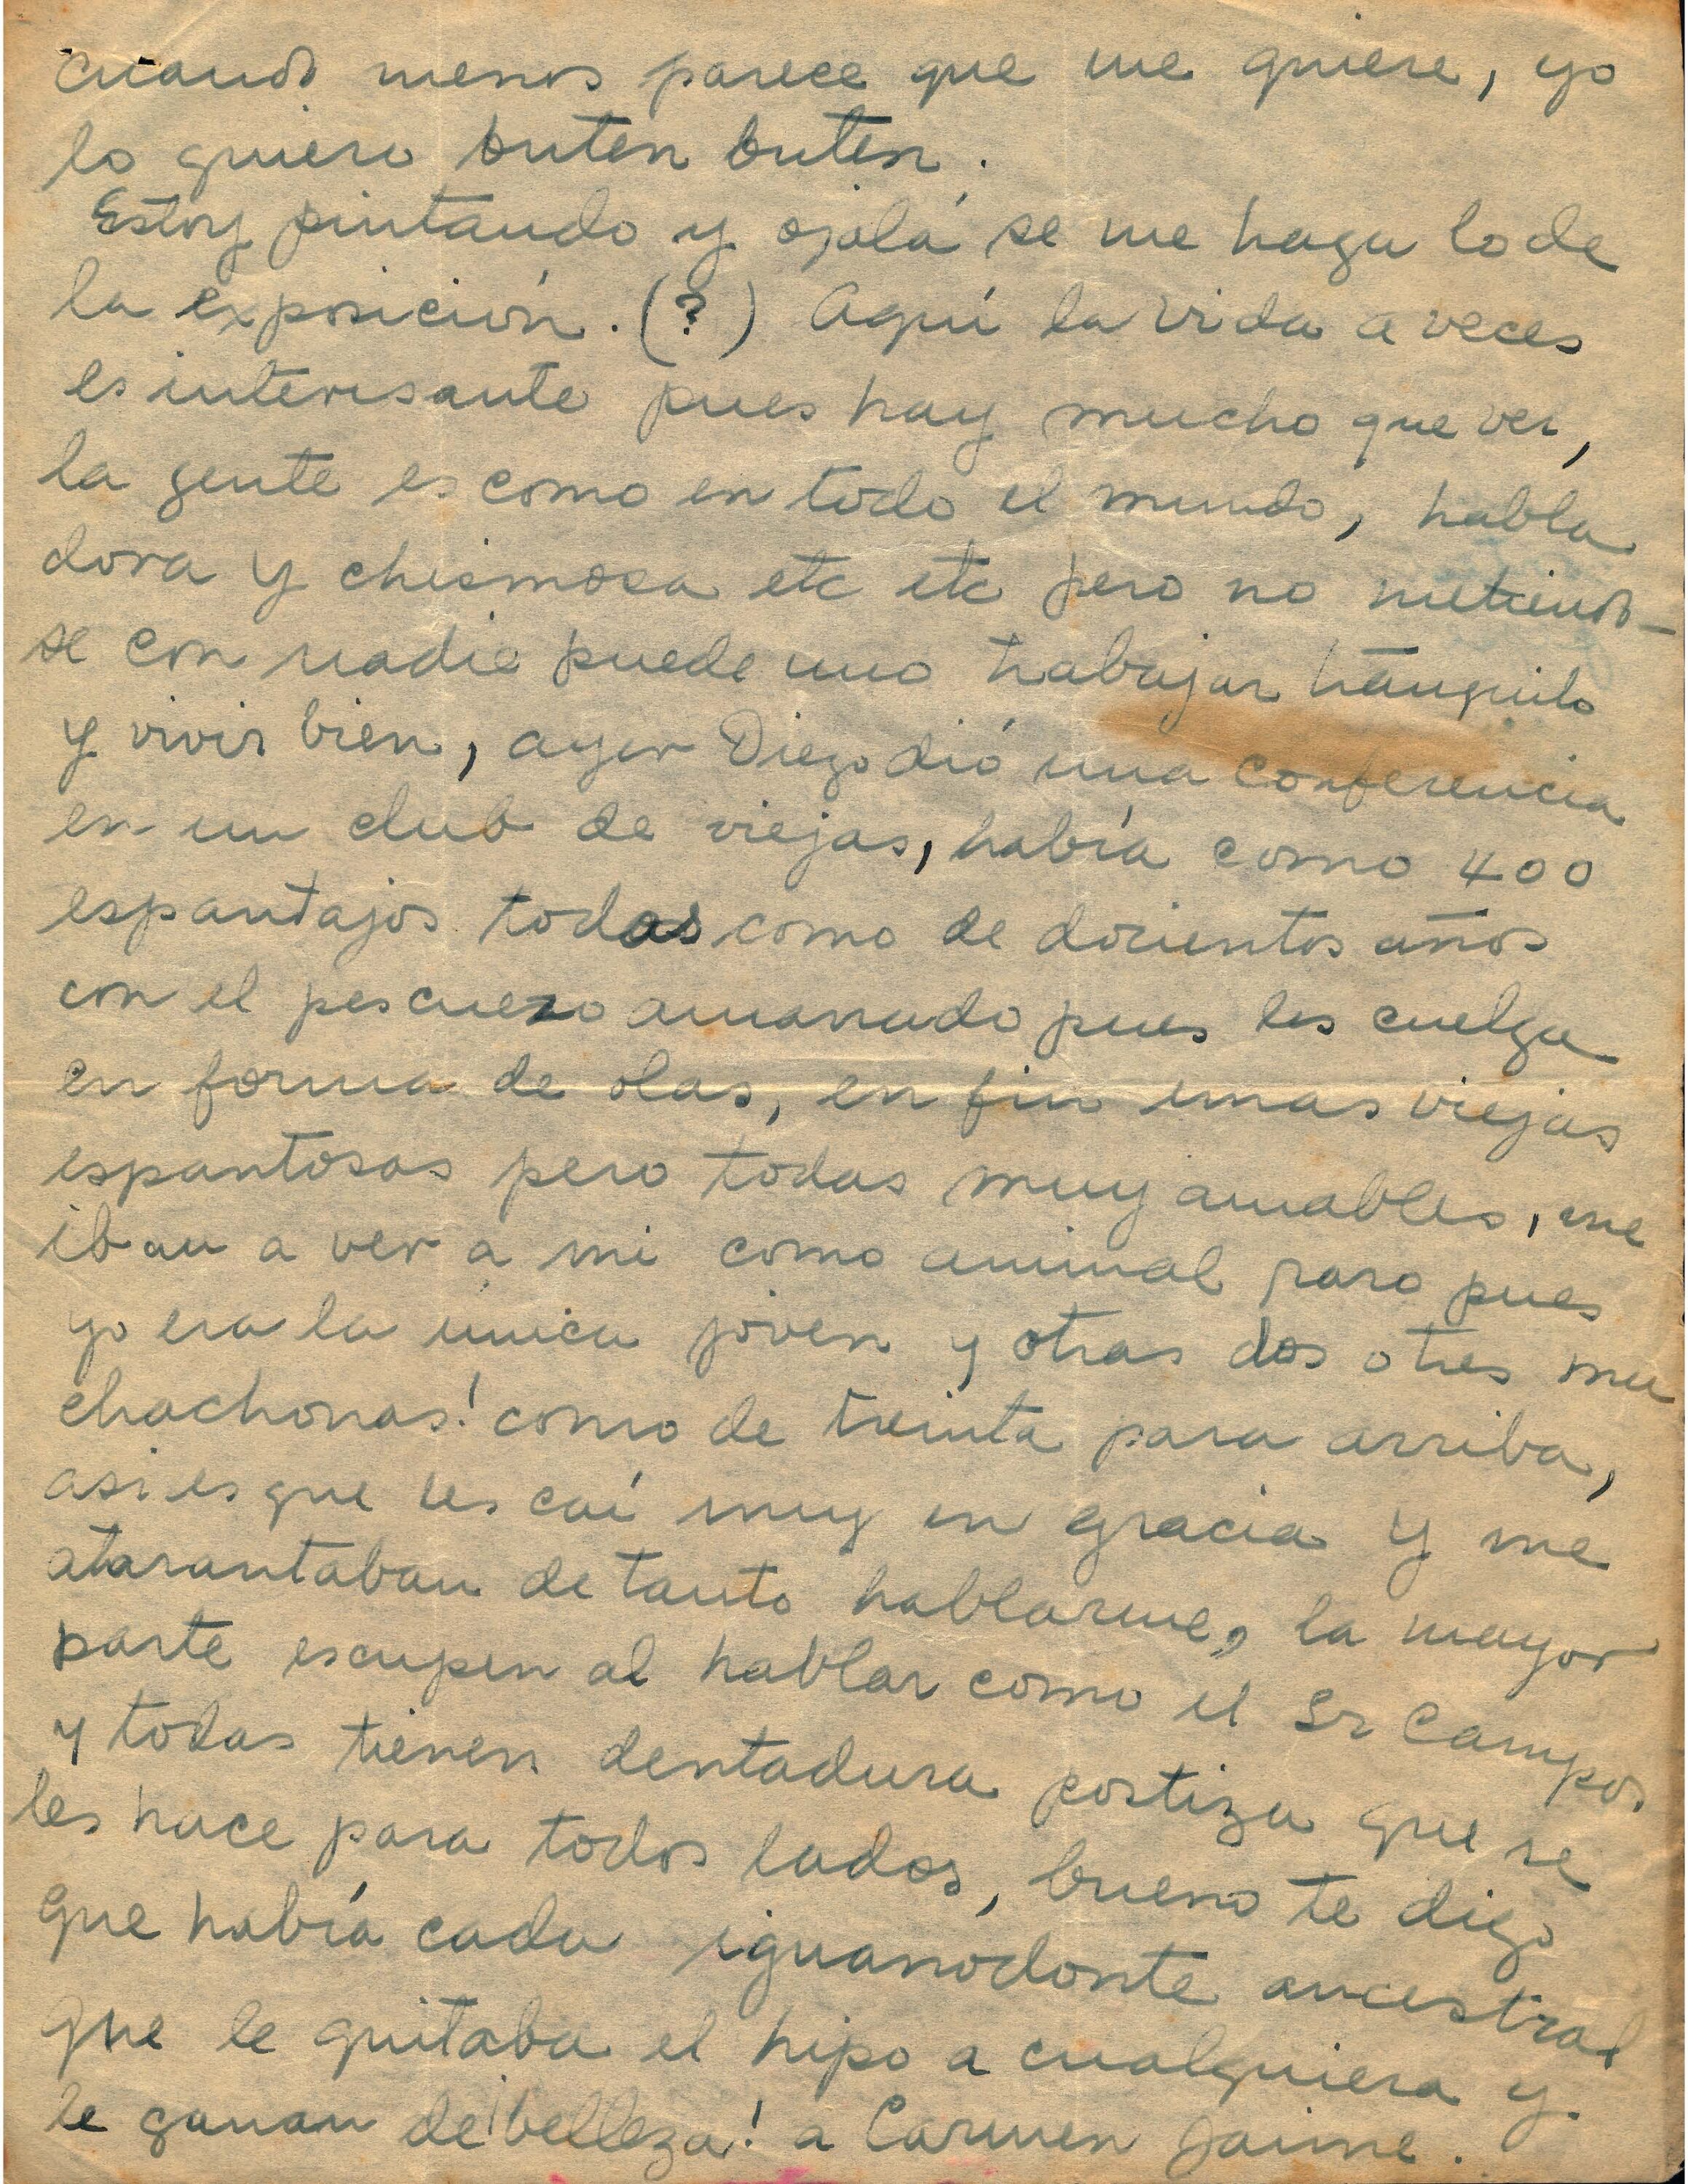 cuando menos parece que me quiere, yo
lo quiero buten buten.
Estoy pintando y ojalá se me haga lo de
la exposición. (?) Aquí la vida a veces
es interesante pues hay mucho que ver,
la gente es como en todo el mundo, habla
dora y chismosa etc etc pero no metiendo-
se con nadie puede uno trabajar tranquilo
y vivir bien, ayer Diego dió una conferencia
en un club de viejas, había como 400
espantajos todas como de docientos años
con el pescuezo amarrado pues les cuelga
en forma de olas, en fin unas viejas
espantosas pero todas muy amables, me
iban a ver a mi como animal raro pues
yo era la única joven y otras dos o tres mu
chachonas! como de treinta para arriba,
asi es que les caí muy en gracia y me
atarantaban de tanto hablarme, la mayor
parte escupen al hablar como el Sr Campos
y todas tienen dentadura postiza que se
les hace para todos lados, bueno te digo
que había cada iguanodonte ancestral
que le quitaba el hipo a cualquiera y
le ganan de ¡belleza! a Carmen Jaime.